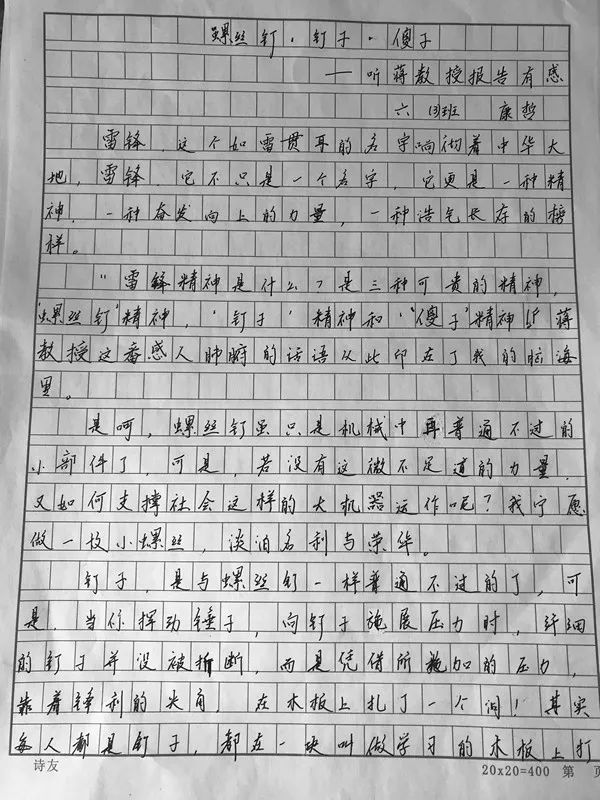 螺丝钉·钉子·傻子
——听蒋教授报告有感
六(3)班 康哲
雷锋,这个如雷贯耳的名字响彻着中华大
地,雷锋,它不只是一个名字,它更是一种精
神,一种奋发向上的力量,一种浩气长存的榜
样。
“雷锋精神是什么?是三种可贵的精神,
“螺丝钉”精神,“钉子”精神和“傻子”精神”蒋
教授这番感人肺腑的话语从此印在了我的脑海
里。
是啊,螺丝钉虽只是机械中再普通不过的
小部件了,可是,若没有这微不足道的力量,
又如何支撑社会这样的大机器运作呢?我宁愿
做一枚小螺丝,淡泊名利与荣华。
钉子,是与螺丝钉一样普通不过的了,可
是,当你挥动锤子,向钉子施展压力时,纤细
的钉子并没被折断,而是凭借所施加的压力,
靠着锋利的尖角,在木板上扎了一个洞!其实
每人都是钉子,都在一块叫做学习的木板上打
诗友
20x20=400 第 页